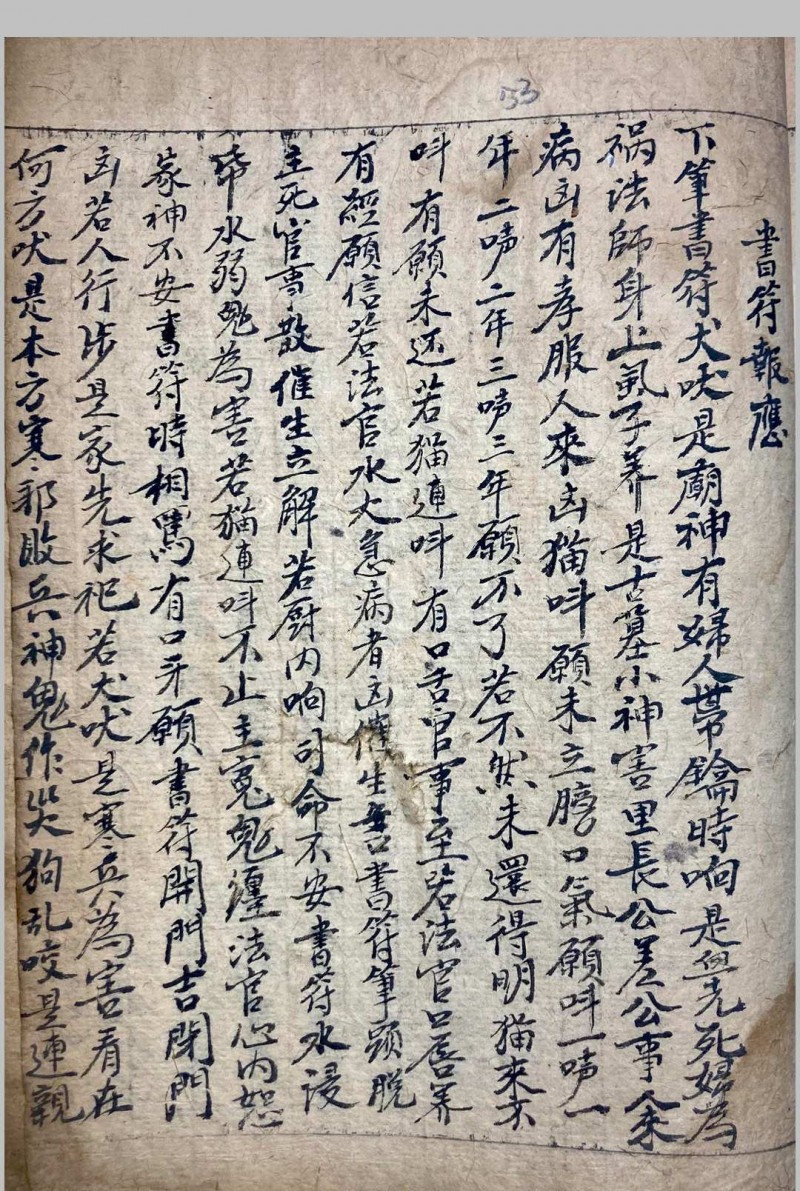 53
書符報應
下筆書符犬吠是廟神有婦人帶鑰時响是血光死婦為
禍法師身上虱子养是古墓小神害里長公差公事人來
病凶有孝服人來凶猫呌願未立膀口氣願呌一啼一
年二啼二年三啼三年願不了若不然未還得明猫來去
呌有願未还若猫連呌有口舌官事至若法官口唇养
有經願信若法官水火急病者凶催生無吉書符筆頭脫
主死官事散催生立解若厨内响司命不安書符水浸
帋水弱鬼為害若猫連呌不止主冤鬼纏法官心内怒
家神不安書符時相罵有口牙願書符開門吉閉門
凶若人行步是家先求祀若犬吠是寒兵為害看在
何方吠是本方寒邪敗兵神鬼作災狗乱咬是連親